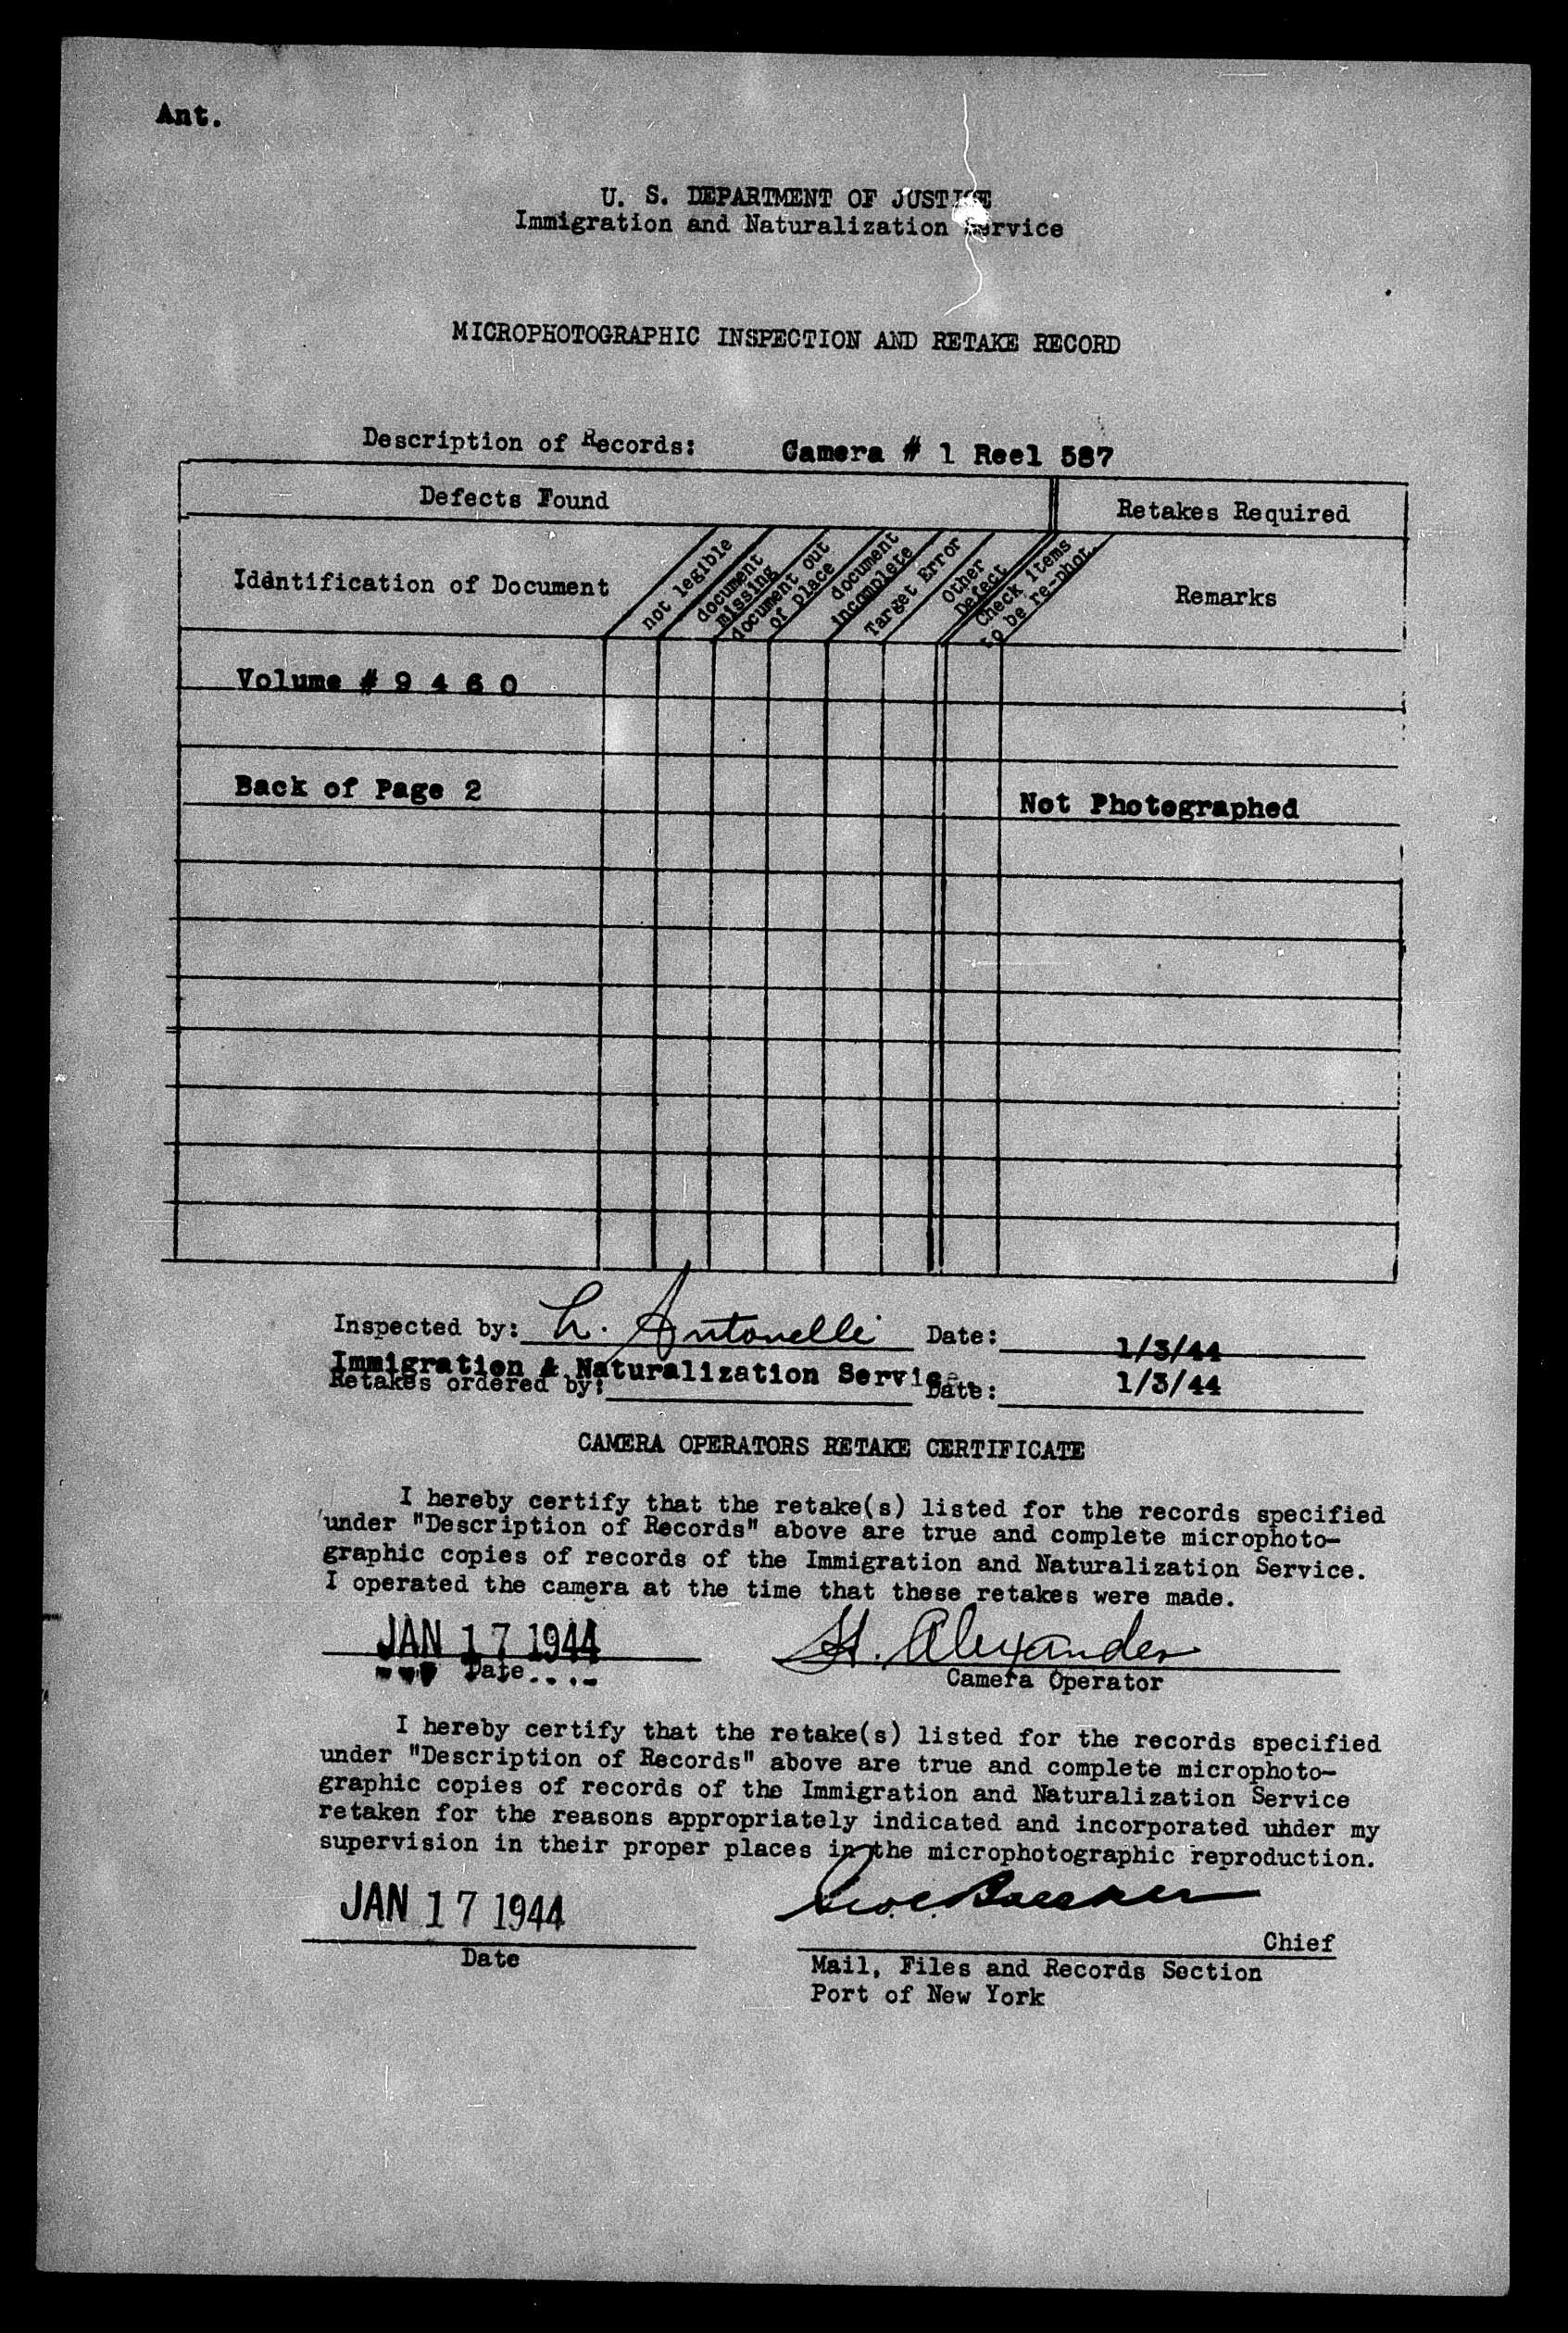 Ant.
U. S. DEPARTMENT OF JUSTICE
Immigration and Naturalization Service
MICROPHOTOGRAPHIC INSPECTION AND RETAKE RECORD
Description of Records: Camera # 1 Reel 587
Defects Found
Retakes Required
Identification of Document
not legible
document missing
document out of place
document incomplete
Target Error
Other Defect
Check items to be re-phot.
Remarks
Volume # 9 4 6 0
Back of Page 2
Not Photographed
Inspected by: L. Antonelli Date: 1/3/44
Immigration & Naturalization Service.
Retakes ordered by: Date: 1/3/44
CAMERA OPERATORS RETAKE CERTIFICATE
I hereby certify that the retake(s) listed for the records specified
under "Description of Records" above are true and complete microphoto-
graphic copies of records of the Immigration and Naturalization Service.
I operated the camera at the time that these retakes were made.
JAN 17 1944 H. Alexander
Date Camera Operator
I hereby certify that the retake(s) listed for the records specified
under "Description of Records" above are true and complete microphoto-
graphic copies of records of the Immigration and Naturalization Service
retaken for the reasons appropriately indicated and incorporated under my
supervision in their proper places in the microphotographic reproduction.
JAN 17 1944
Chief
Date
Mail, Files and Records Section
Port of New York